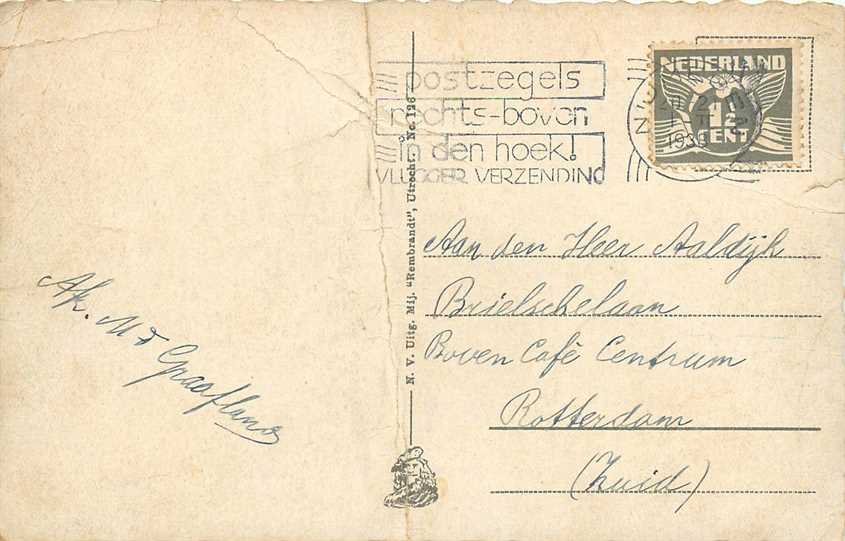 postzegels
rechts-boven
in den hoek!
VLUGGER VERZENDING
NEDERLAND
1½
CENT
1939
N.V. Uitg. Mij. "Rembrandt", Utrecht. No. 126
Aan den Heer Aaldijk
Brielschelaan
Boven Café Centrum
Rotterdam
(Zuid)
Afz. M v Graafland